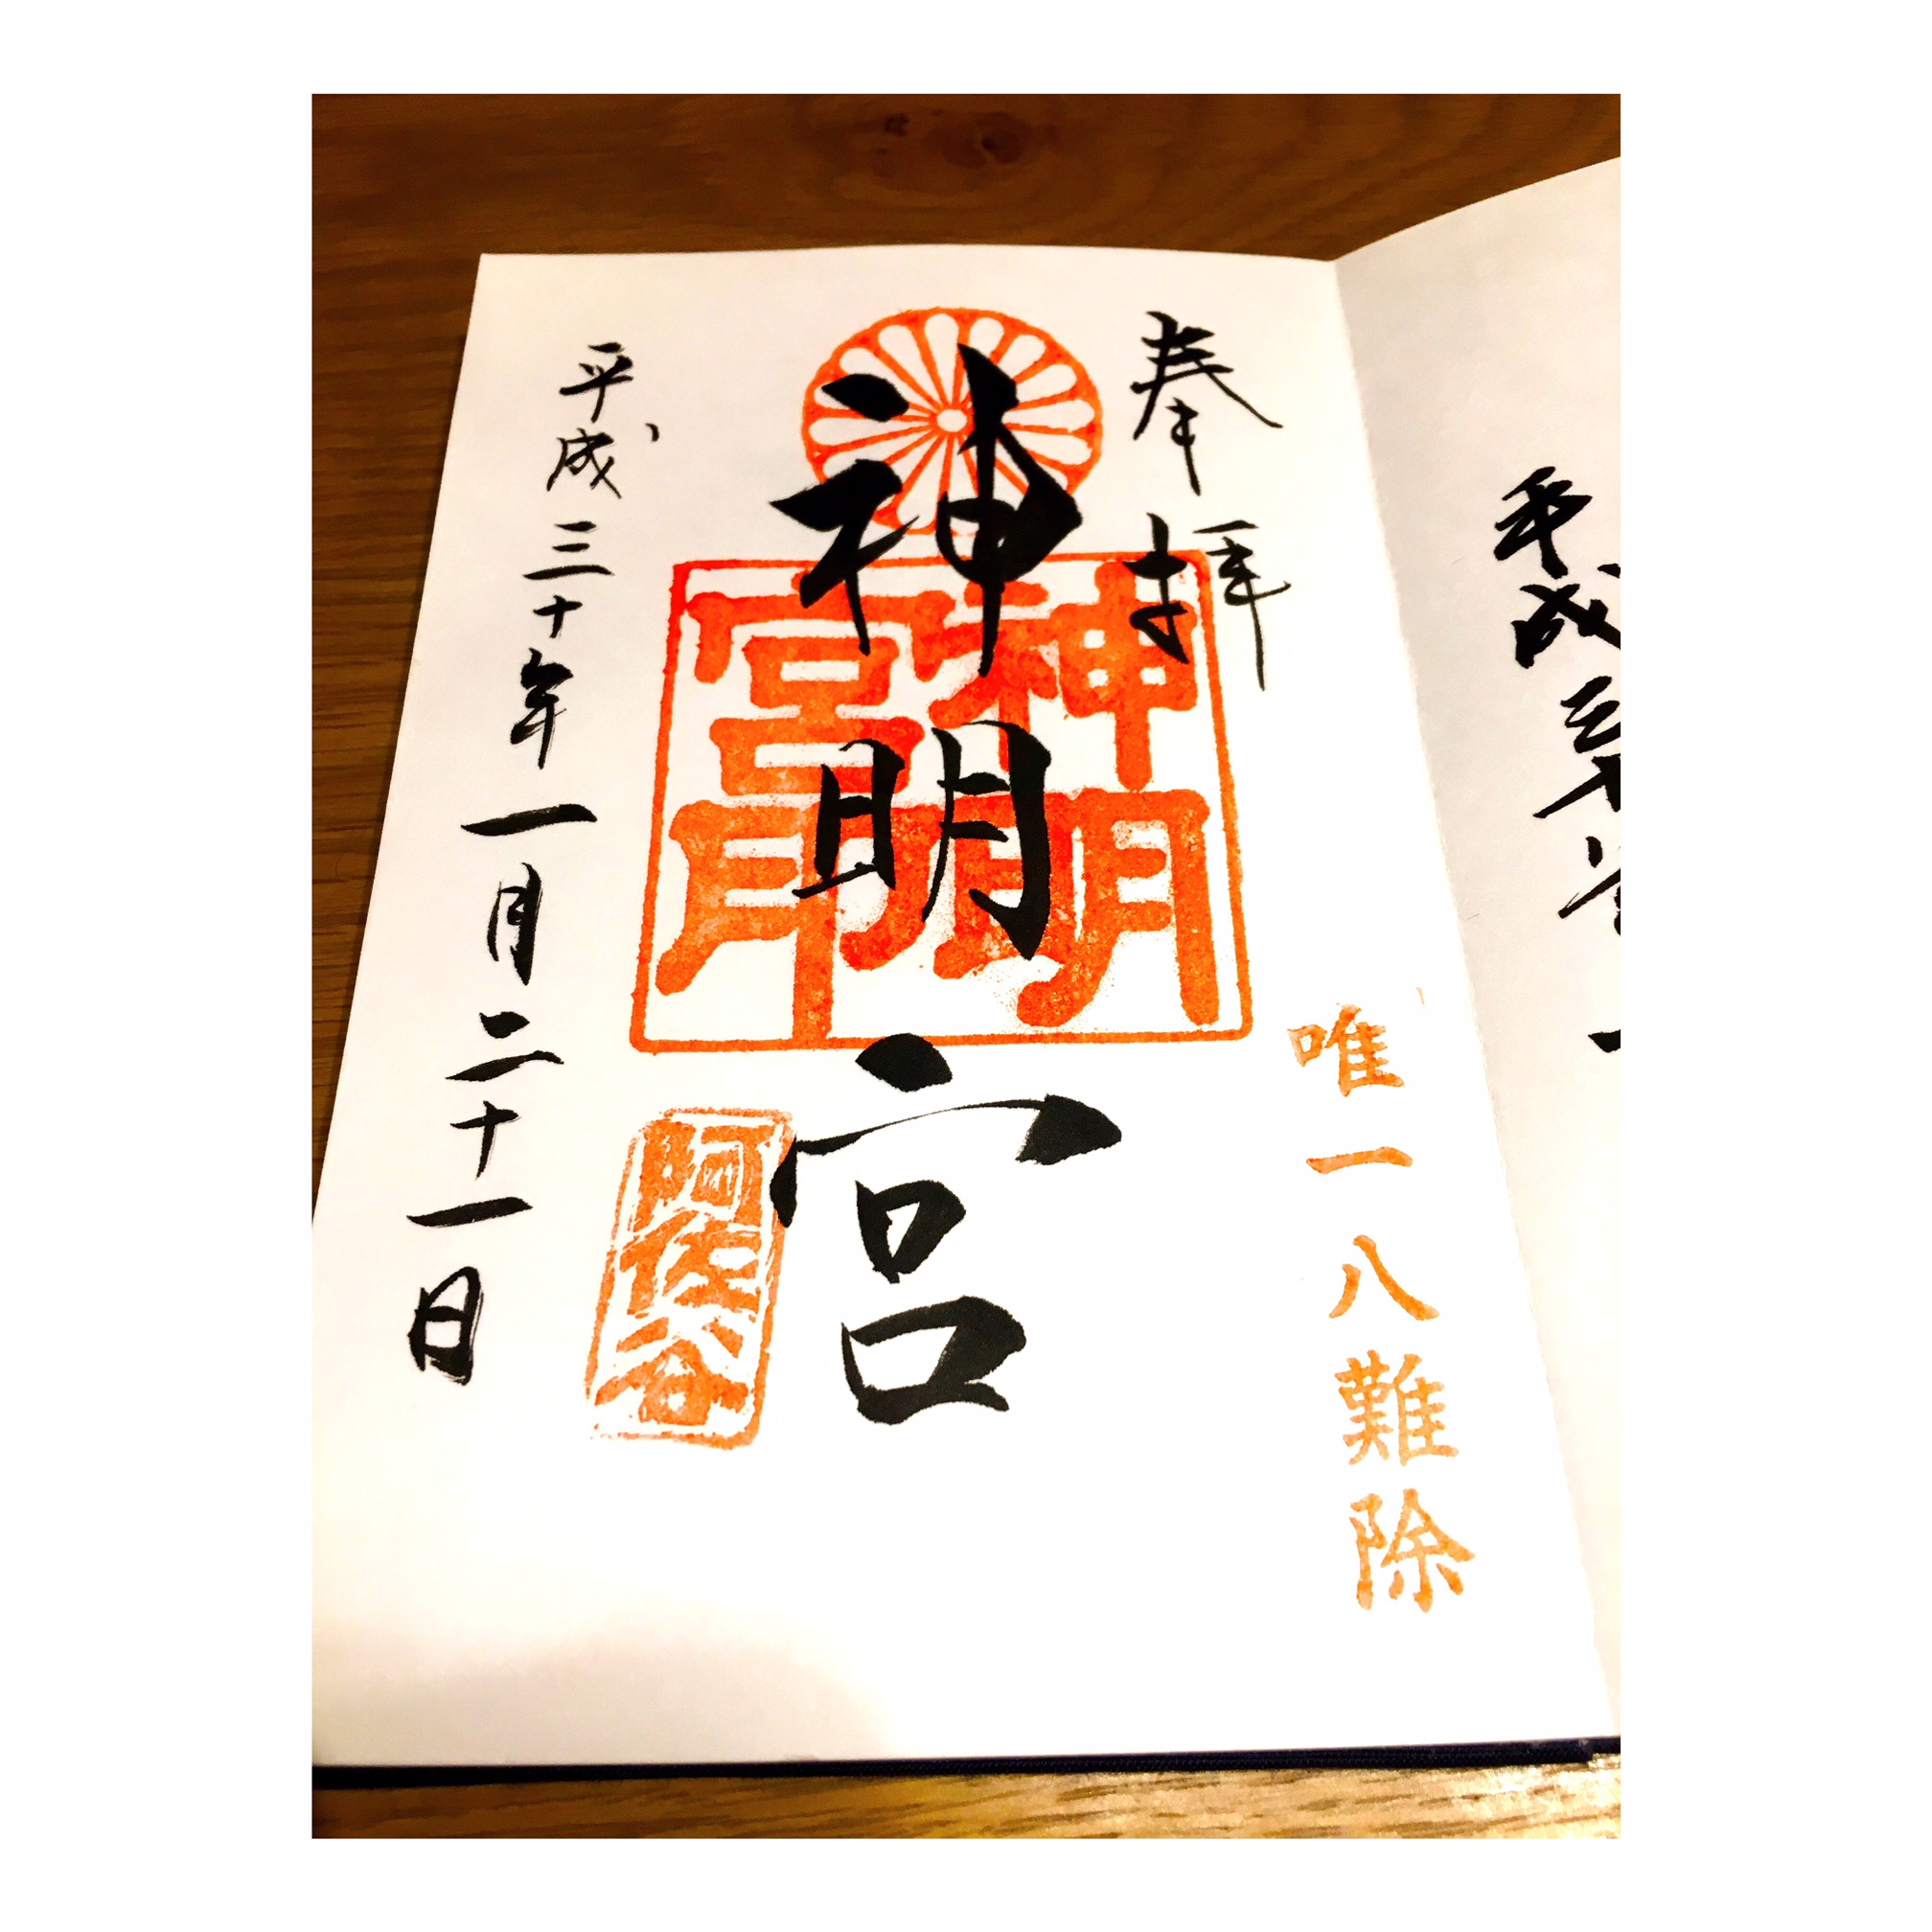 奉拝
唯一八難除
神明宮
神明
宮印
阿佐谷
平成三十年一月二十一日
平成三十年
一